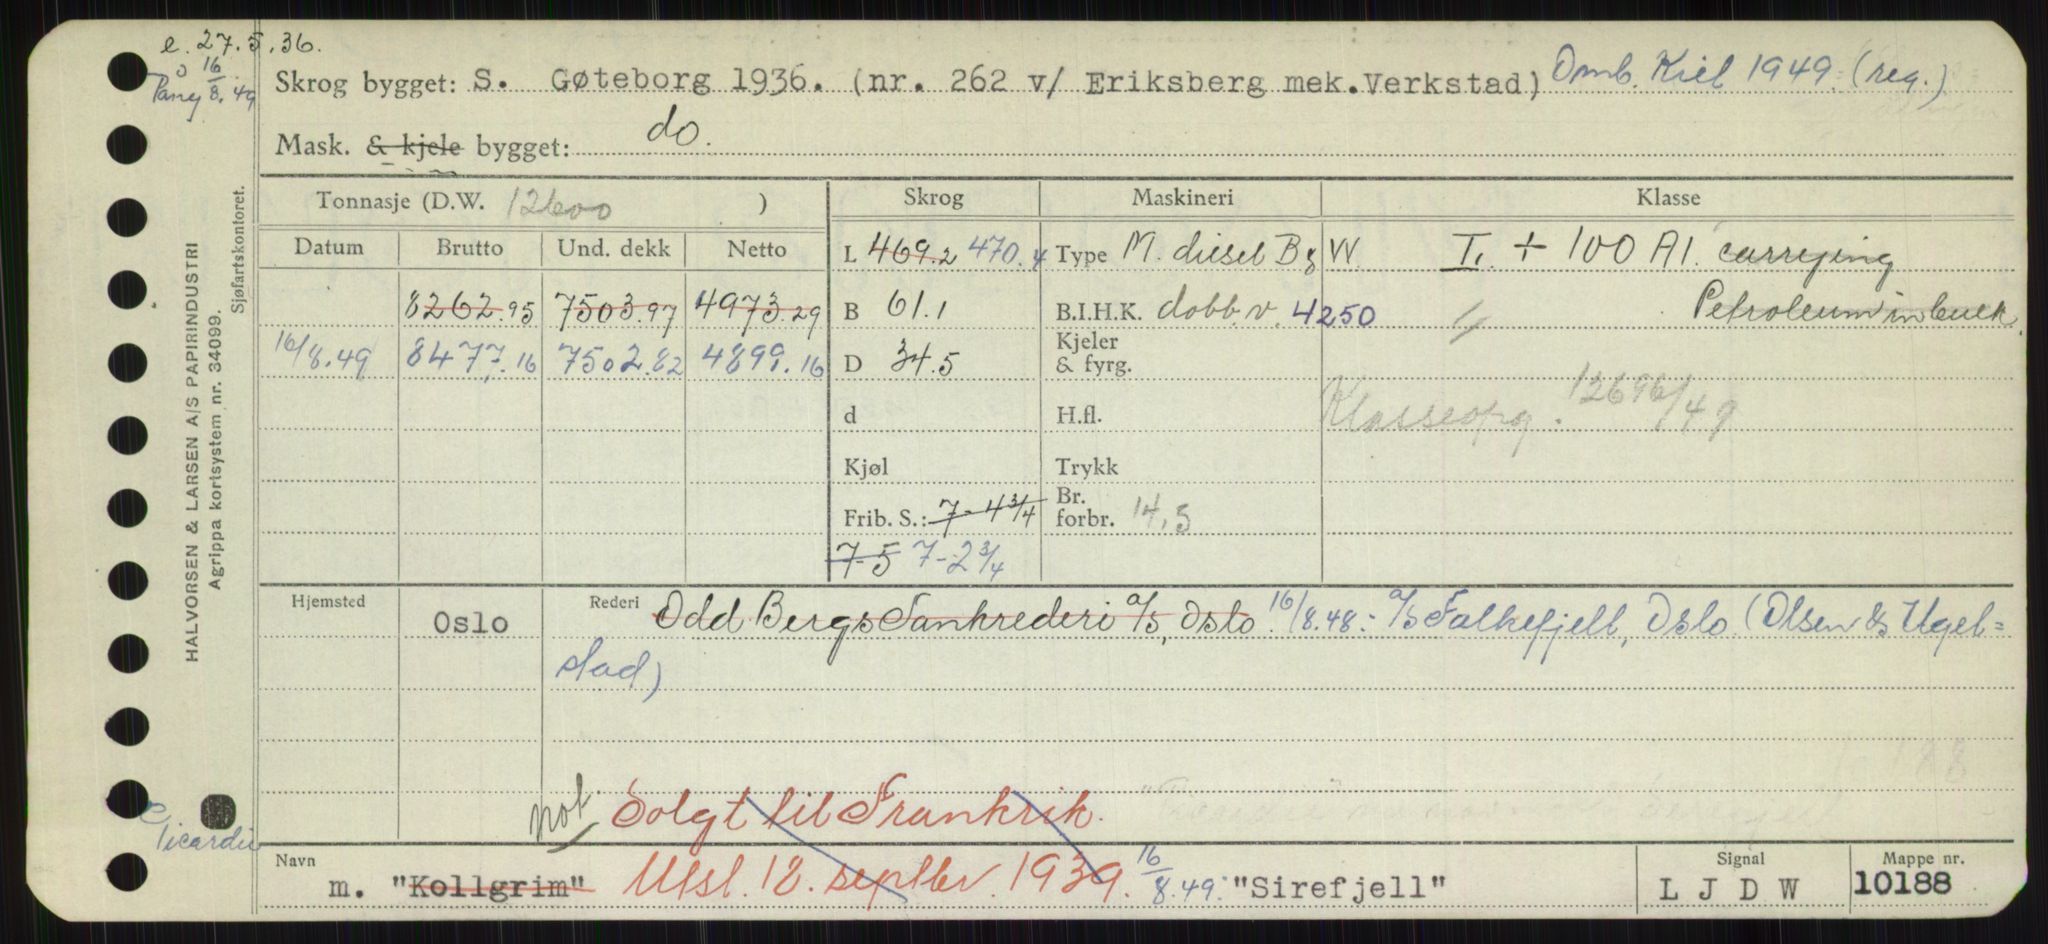 e. 27.5.36.
16/8.49
Skrog bygget: S. Gøteborg 1936. (nr. 262 v/ Eriksberg mek.Verkstad) Omb. Kiel 1949. (reg.)
Mask. & kjele bygget: do.
Tonnasje (D.W. 12600 ) Skrog Maskineri Klasse
Datum Brutto Und. dekk Netto L 469.2 470.4 Type M. diesel B & W I. + 100 A1. carrying
8262.95 7503.97 4973.29 B 61.1 B.I.H.K. dobb.v. 4250 " Petroleum in bulk.
16/8.49 8477.16 7502.82 4899.16 D 34.5 Kjeler & fyrg.
d H.fl. 12696/49
Kjøl Trykk
Frib. S.: 7-4 3/4 Br. forbr. 14,5
7-5 7-2 3/4
Hjemsted Oslo Rederi Odd Bergs Tankrederi a/s, Oslo 16/8.48.- A/S Falkefjell, Oslo (Olsen & Ugel=
stad)
not. Solgt til Frankrik.
Picardie
Navn m. "Kollgrim" Utsl. 18. septbr. 1939. 16/8.49. "Sirefjell" Signal L J D W Mappe nr. 10188
HALVORSEN & LARSEN A/S PAPIRINDUSTRI
Agrippa kortsystem nr. 34099.
Sjøfartskontoret.